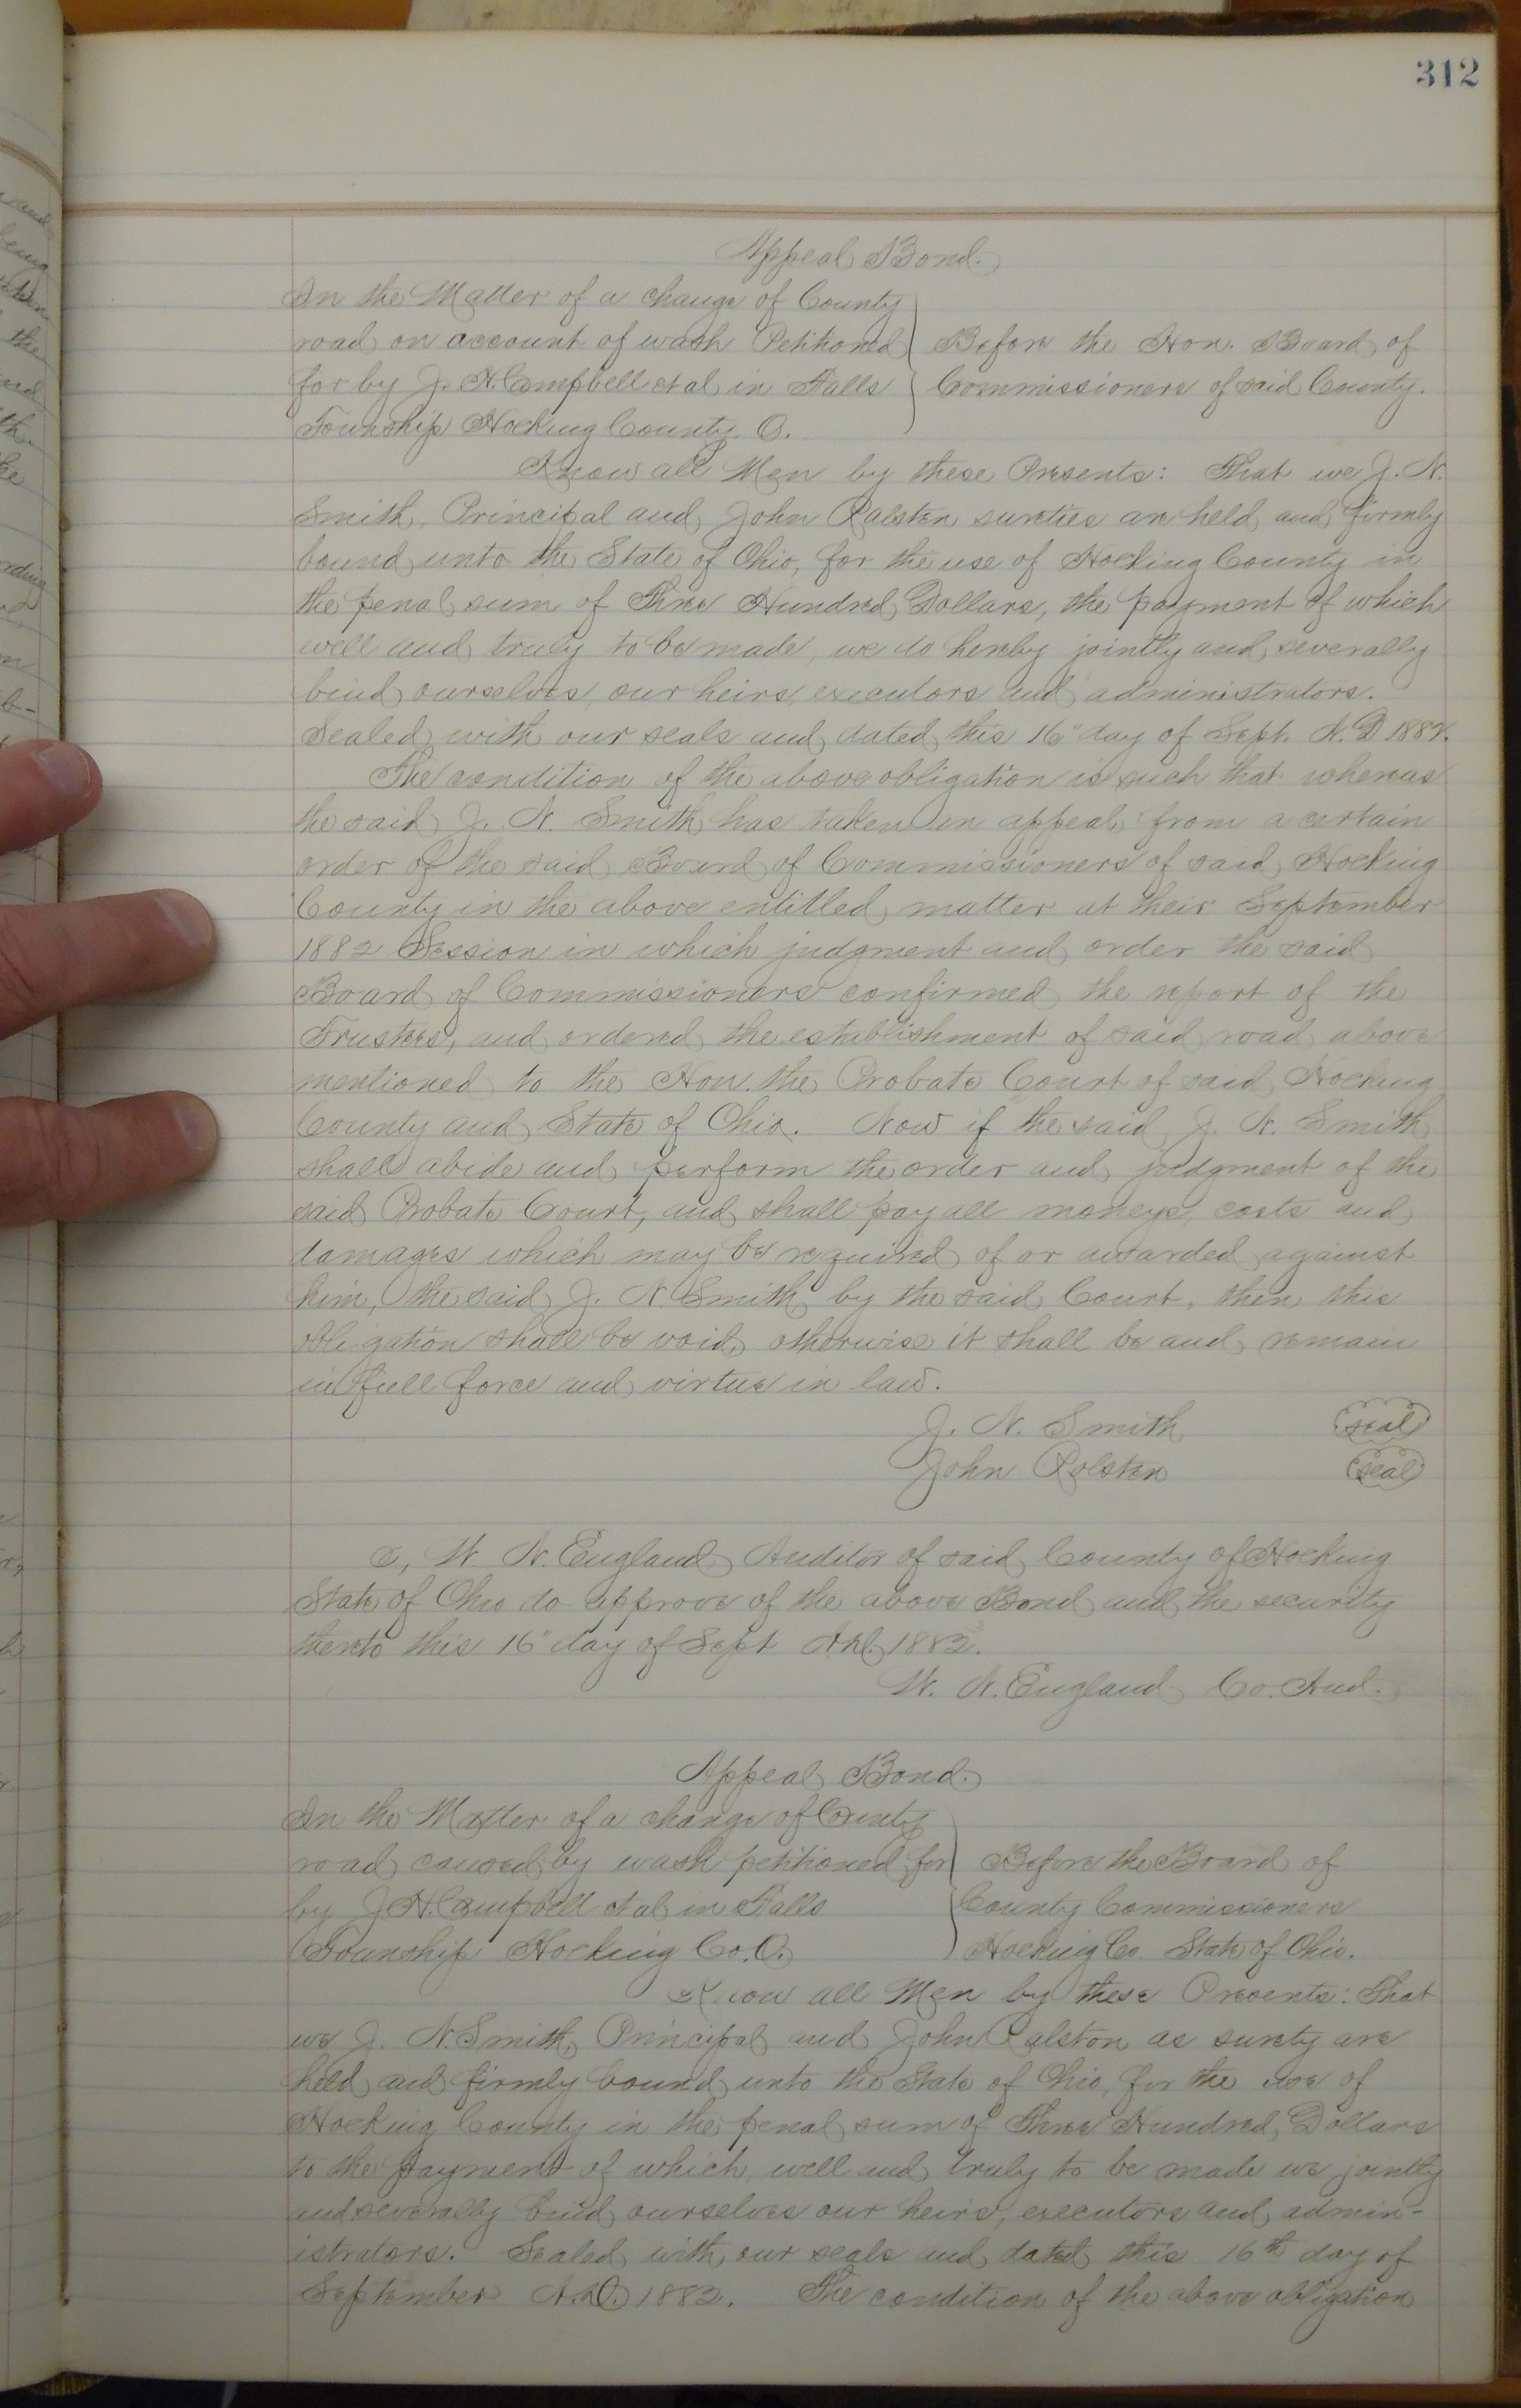 312
Appeal Bond.
In the Matter of a change of County
road on account of wash Petitioned
for by J. H. Campbell et al in Falls
Township Hocking County O.
Before the Hon. Board of
Commissioners of said County.
Know all Men by these Presents: That we J. N.
Smith, Principal and John Ralston sureties are held and firmly
bound unto the State of Ohio, for the use of Hocking County in
the penal sum of Three Hundred Dollars, the payment of which
well and truly to be made, we do hereby jointly and severally
bind ourselves, our heirs, executors and administrators.
Sealed with our seals and dated this 16" day of Sept. A. D 1882.
The condition of the above obligation is such that whereas
the said J. N. Smith has taken an appeal from a certain
order of the said Board of Commissioners of said Hocking
County in the above entitled matter at their September
1882 Session in which judgment and order the said
Board of Commissioners confirmed the report of the
Trustees, and ordered the establishment of said road above
mentioned to the Hon. the Probate Court of said Hocking
County and State of Ohio. Now if the said J. N. Smith
shall abide and perform the order and judgment of the
said Probate Court, and shall pay all moneys, costs and
damages which may be required of or awarded against
him, the said J. N. Smith by the said Court, then this
obligation shall be void, otherwise it shall be and remain
in full force and virtue in law.
J. N. Smith seal
John Ralston seal
I, W. N. England Auditor of said County of Hocking
State of Ohio do approve of the above Bond and the security
thereto this 16" day of Sept A.D. 1882.
W. N. England Co. Aud.
Appeal Bond.
In the Matter of a change of County
road caused by wash petitioned for
by J. H. Campbell et al in Falls
Township Hocking Co. O.
Before the Board of
County Commissioners
Hocking Co. State of Ohio.
Know all Men by these Presents: That
we J. N. Smith, Principal and John Ralston as surety are
held and firmly bound unto the State of Ohio, for the use of
Hocking County in the penal sum of Three Hundred, Dollars
to the payment of which well and truly to be made we jointly
and severally bind ourselves our heirs, executors and admin-
istrators. Sealed with our seals and dated this 16th day of
September A.D. 1882. The condition of the above obligation